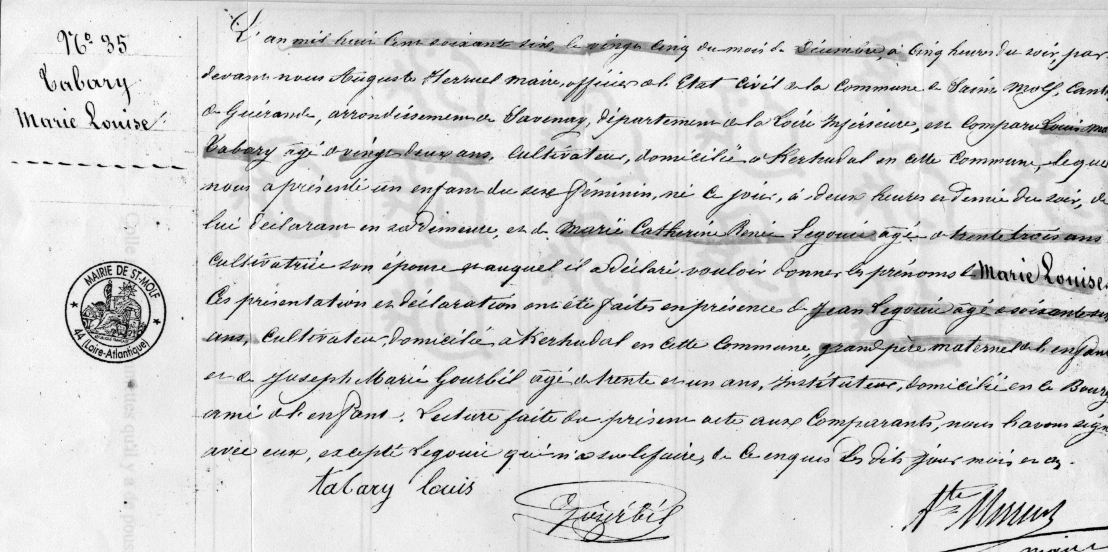 N° 35
Tabary
Marie Louise
L'an mil huit cent soixante six, le vingt cinq du mois de Décembre, à cinq heures du soir, par
devant nous Auguste maire, officier de l'Etat civil de la Commune de Saint Molf, Cant
de Guérande, arrondissement de Savenay, département de la Loire Inférieure, est comparu Louis ma
Tabary âgé de vingt deux ans, Cultivateur, domicilié à Kerhudal en cette Commune, lequel
nous a présenté un enfant du sexe féminin, né ce jour, à deux heures et demie du soir, de
lui déclarant en sa demeure, et de Marie Catherine Renée Legouic âgé de trente trois ans
Cultivatrice son épouse et auquel il a déclaré vouloir donner les prénoms de Marie Louise.
Ces présentation et déclaration ont été faites en présence de Jean Legouic âgé de soixante
ans, Cultivateur, domicilié à Kerhudal en cette Commune, grand père maternel de l'enfant
et de Joseph Marie Gourbil âgé de trente et un ans, Instituteur, domicilié en ce Bourg
ami de l'enfant. Lecture faite du présent acte aux Comparants, nous l'avons signé
avec eux, excepté Legouic qui n'a su le faire, de ce enquis les dits jour mois et an.
tabary louis
Gourbil
Ate
maire
MAIRIE DE ST-MOLF
44 (Loire-Atlantique)